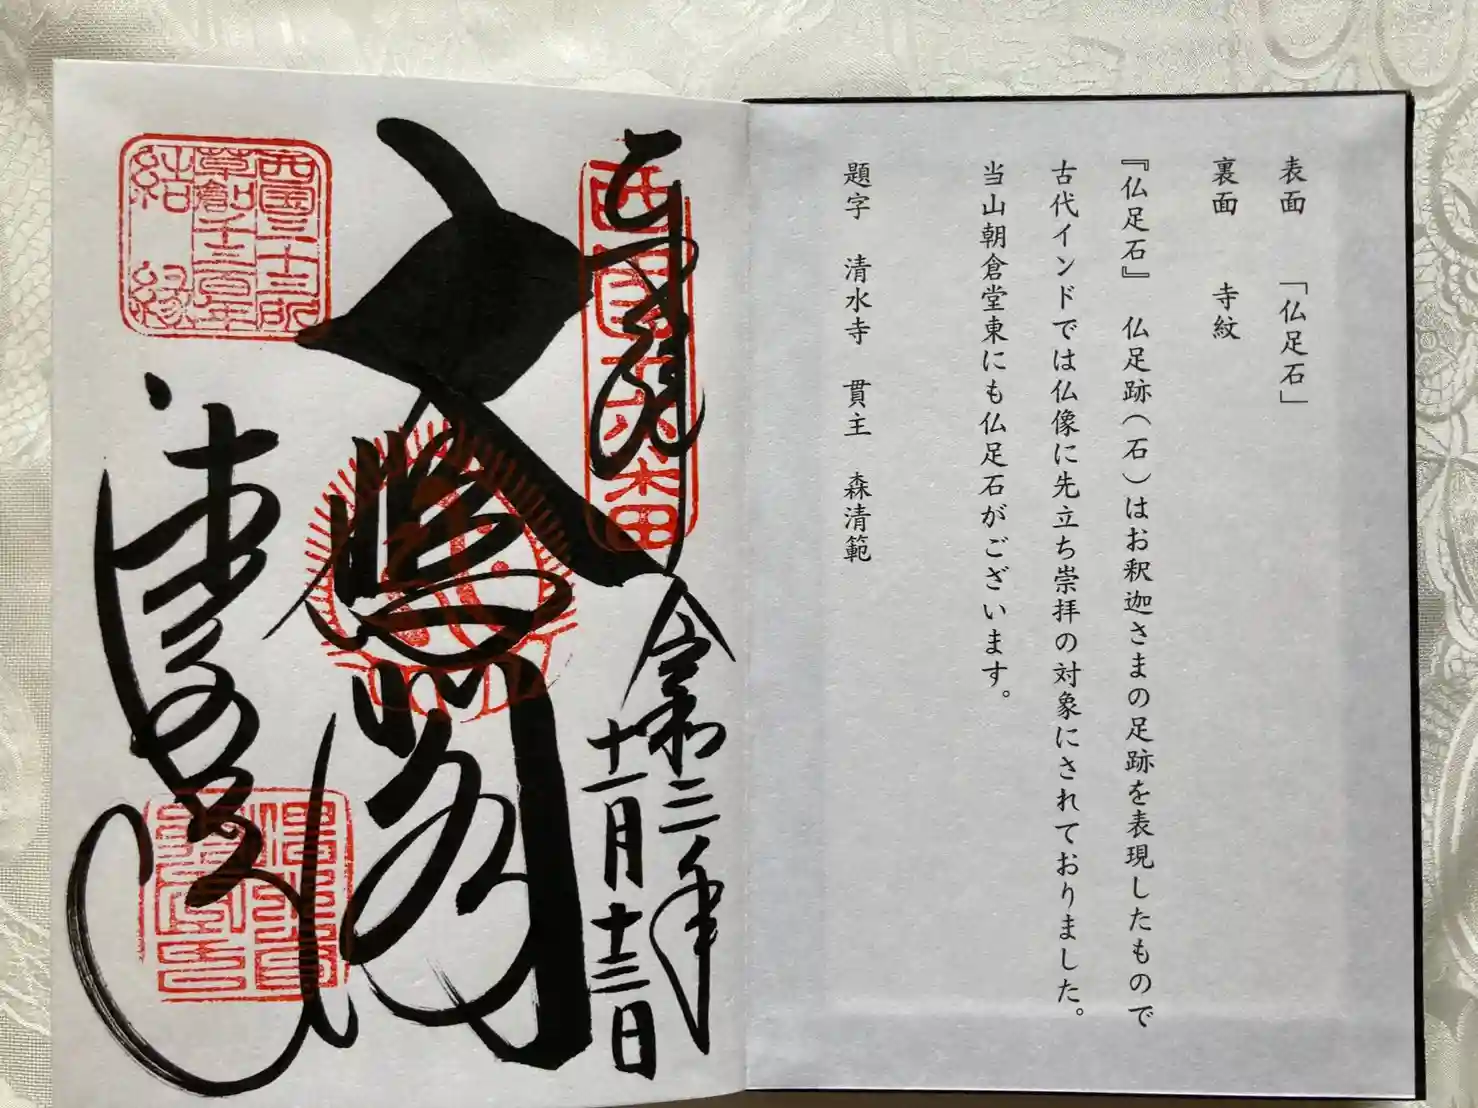 表面 「仏足石」
裏面 寺紋
『仏足石』 仏足跡(石)はお釈迦さまの足跡を表現したもので
古代インドでは仏像に先立ち崇拝の対象にされておりました。
当山朝倉堂東にも仏足石がございます。
題字 清水寺 貫主 森清範
奉拝
西国十六番
令和二年
十一月十三日
大悲閣
清水寺
西国三十三所
草創千三百年
結縁